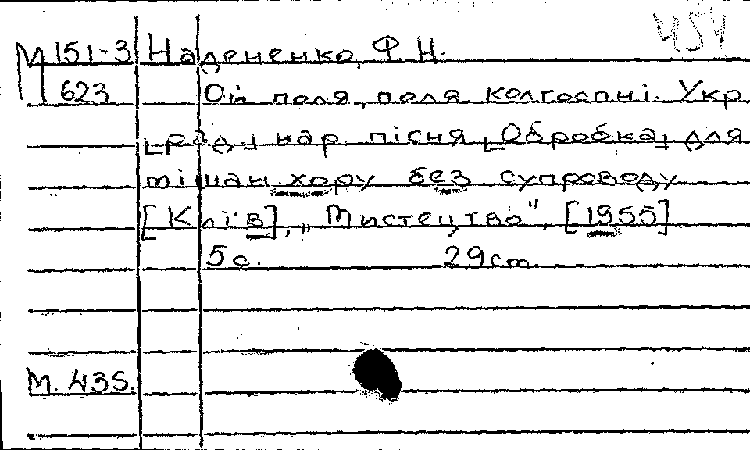 М 151-3 Надененко, Ф. Н.
623 Ой поля, поля колгоспні. Укр
[рад.] нар. пісня [Обробка] для
мішан хору без супроводу
[Київ], „Мистецтво", [1955]
5 с. 29 см.
М. 435.